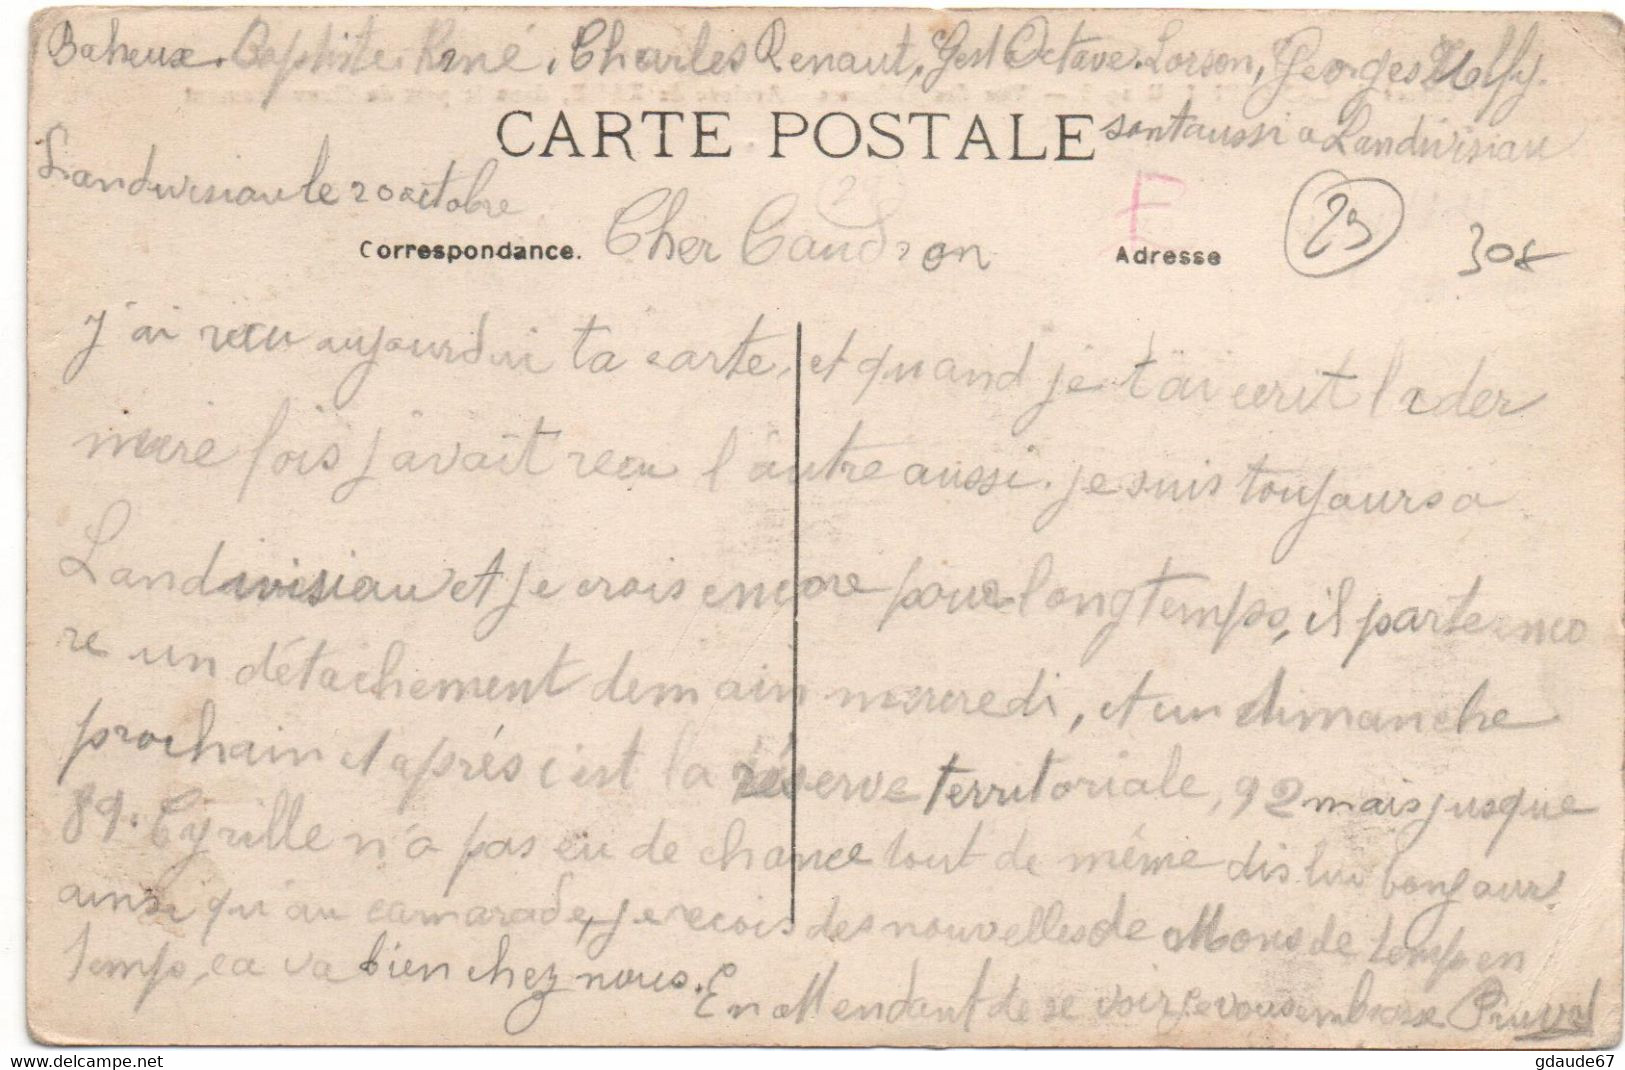 Baheux. Baptiste René, Charles Renaut, Octave Lorson, Georges
CARTE POSTALE sont aussi a Landivisiau
Landivisiau le 20 octobre
Correspondance. Cher Caudron Adresse F 29 30f
J'ai recu aujourdui ta carte, et quand je t'ai ecrit la der
niere fois j'avait recu l'autre aussi. je suis toujours a
Landivisiau et je crois encore pour longtemps, il part enco
re un détachement demain mercredi, et un dimanche
prochain et après c'est la réserve territoriale, 92 mais jusque
89. Cyrille n'a pas eu de chance tout de même dis lui bonjour
ainsi qu'au camarade, je recois des nouvelles de Mons de temps en
temps, ca va bien chez nous. En attendant de se voir je vous embrasse Pruvot
gdaude67